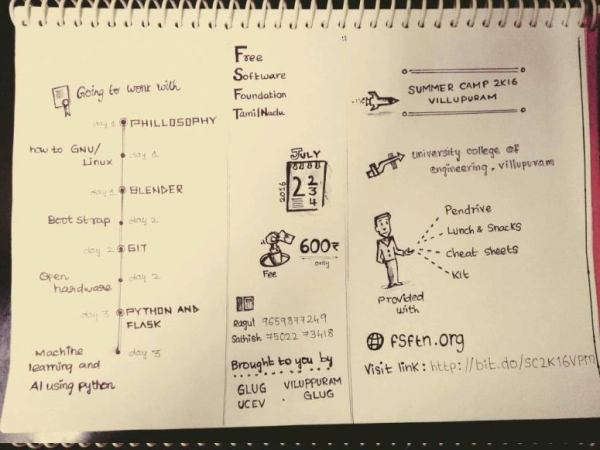 Going to work with
day 1 PHILLOSOPHY
how to GNU/
Linux day 1
day 1 BLENDER
Boot strap day 2
day 2 GIT
Open
hardware day 2
day 3 PYTHON AND
FLASK
Machine
learning and
AI using python day 3
Free
Software
Foundation
TamilNadu
JULY
2016
22
3
4
Fee 600₹
only
Ragul 9659877249
Sathish 75022 73418
Brought to you by
GLUG VILUPPURAM
UCEV GLUG
SUMMER CAMP 2K16
VILLUPURAM
University college of
engineering, villupuram
Pendrive
Lunch & Snacks
Cheat Sheets
Kit
Provided
with
fsftn.org
Visit link: http://bit.do/SC2K16VPM